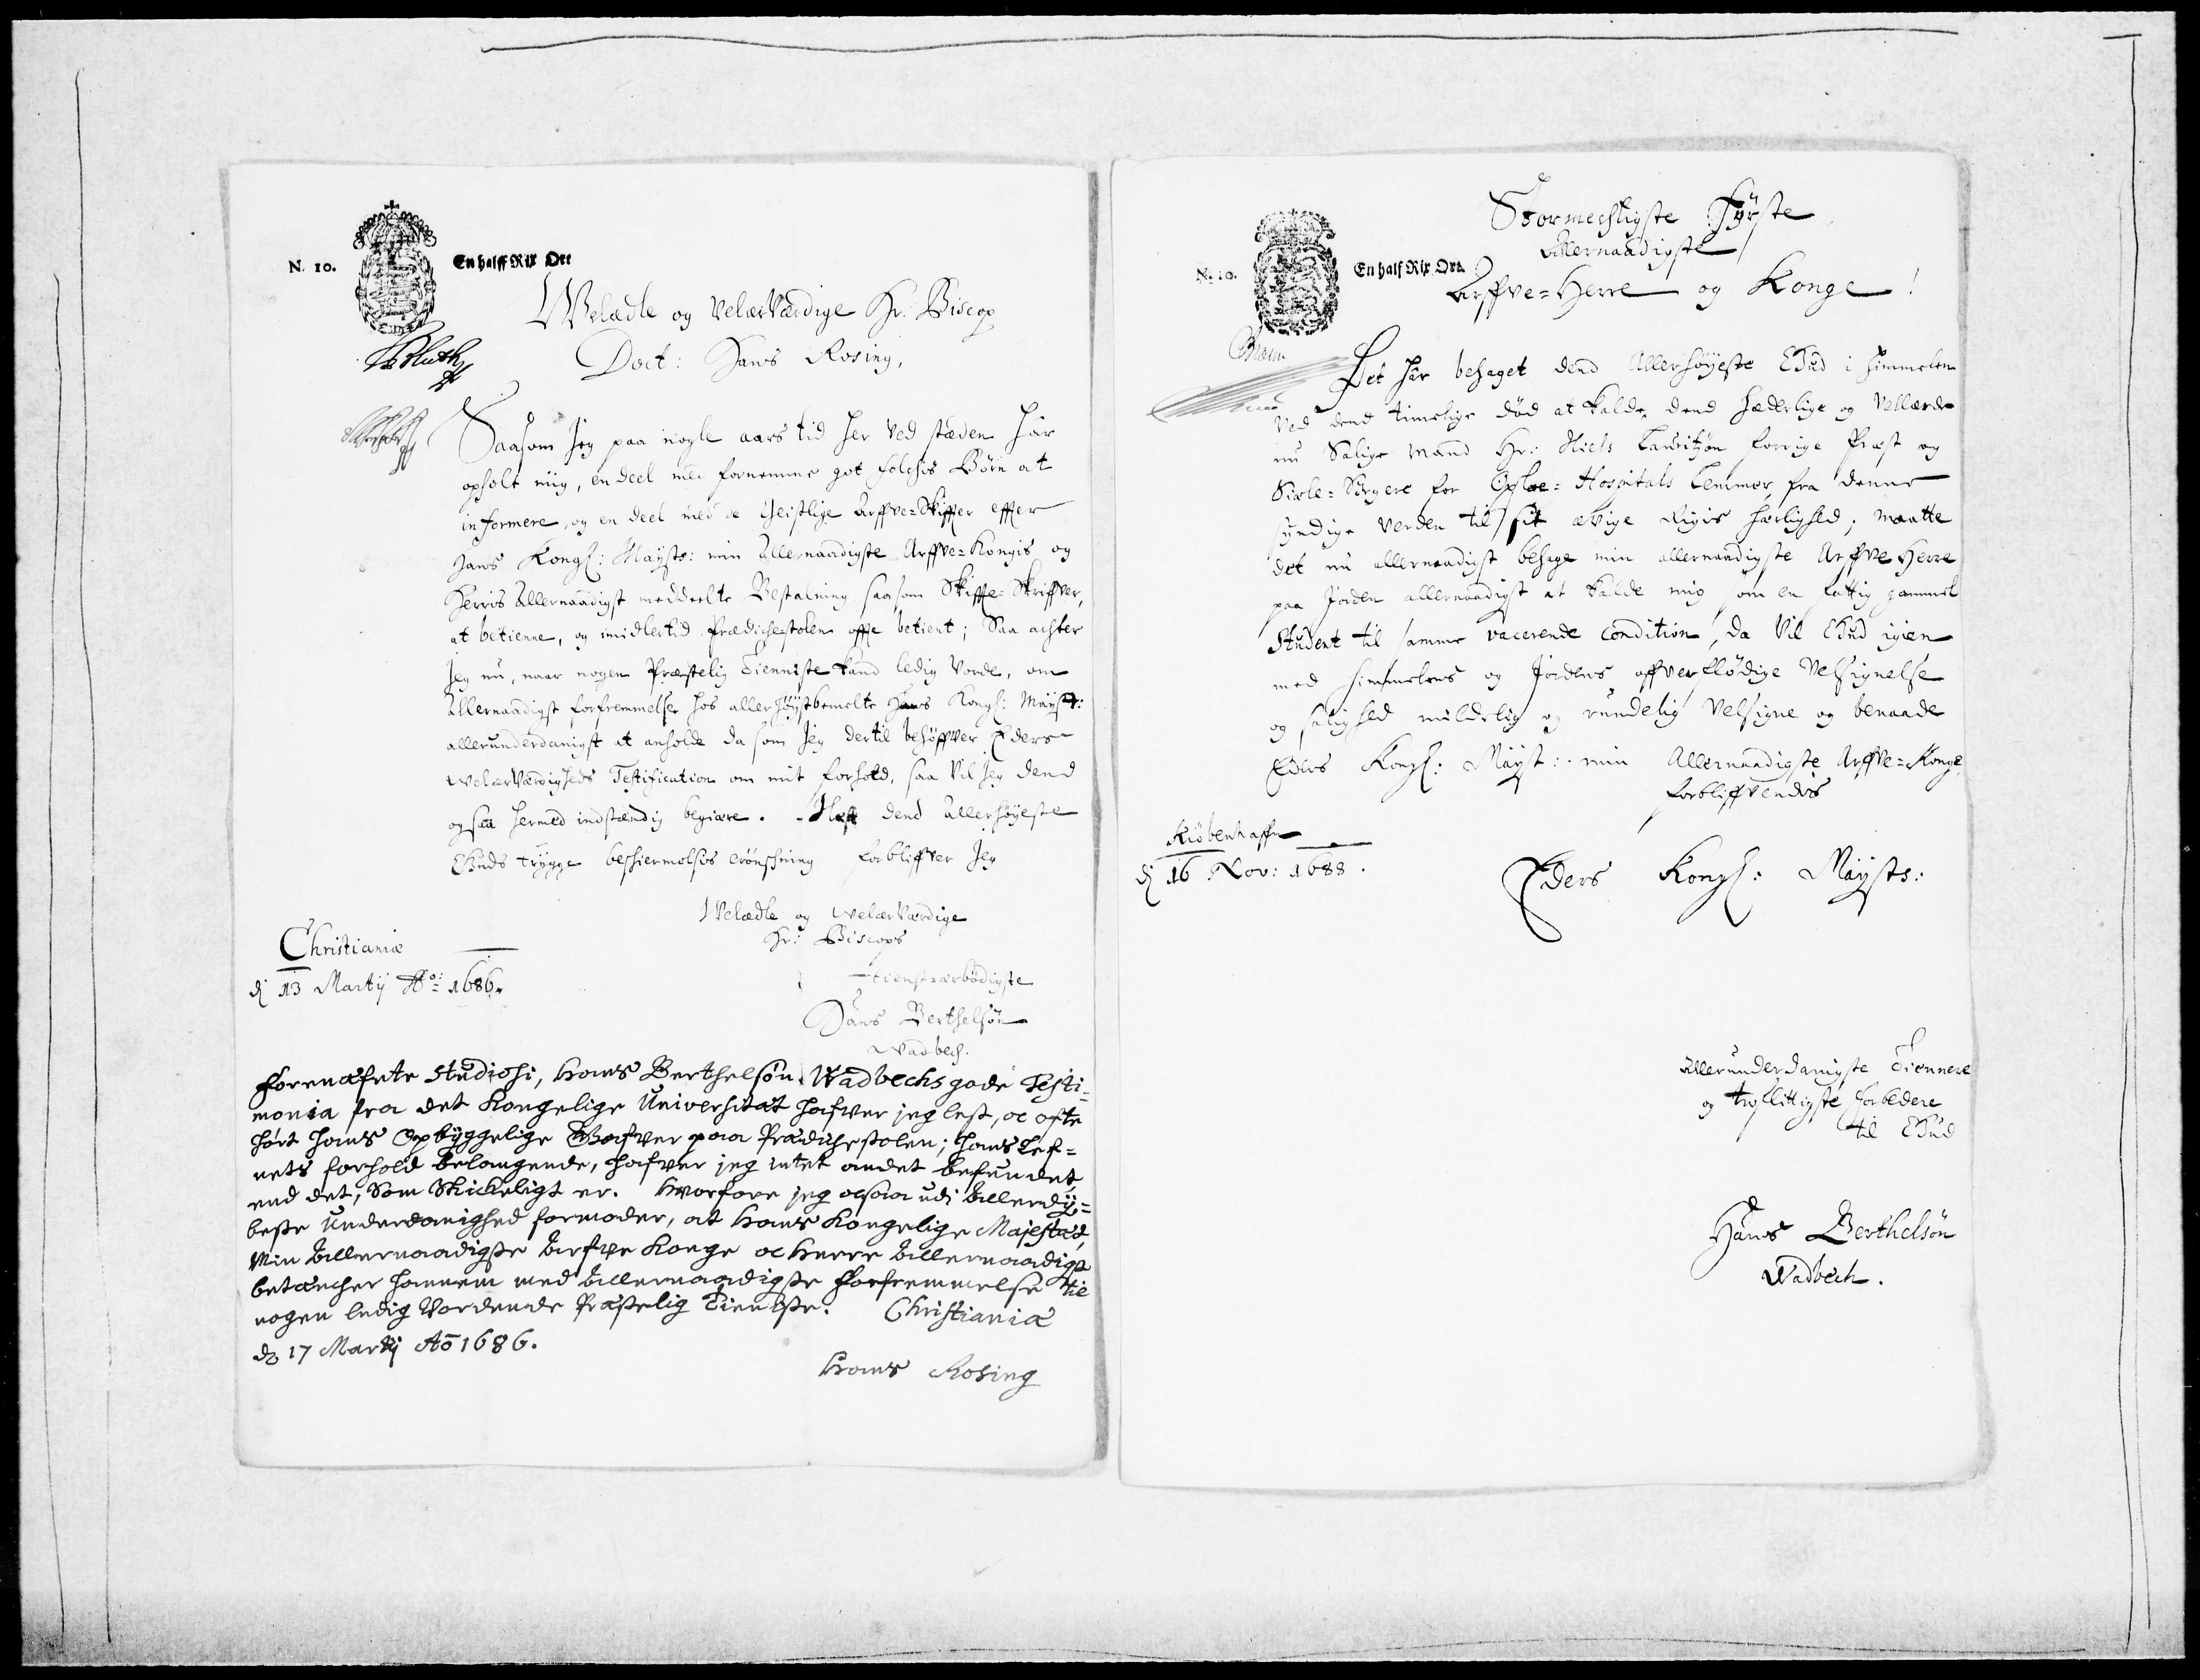 N. 10.
En halff Rix Ort
Welædle og VelærVærdige Hr: Biscop
Doct: Hans Rosing,
Saasom Jeg paa nogle aars tid her ved stæden har
opholt mig, en deel med fornemme got folchis Børn at
informere, og en deel med de Geistlige Arffve-Skiffter effter
Hans Kongl: Mayts: min Allernaadigste Arffve-Kongis og
Herris Allernaadigst meddeelte Bestalning saasom Skiffte-Skriffver,
at betienne, og imidlertid Prædichestolen offte betient; Saa achter
Jeg nu, naar nogen Præstelig Tienniste kand ledig Vorde, om
Allernaadigst forfremmelse hos allerhøystbemelte Hans Kongl: Mayst:
allerunderdanigst at anholde da som Jeg dertil behøffver Eders
WelærVærdigheds Testification om mit forhold, saa Vil Jeg dend
ogsaa hermed indstændig begiære. Næst dend Allerhøyeste
Guds trygge beschiermelsis forbliffver Jeg
Welædle og WelærVærdige
Hr: Biscops
tienstærbødigste
Hans Berthelsøn
Wadbech.
Christianiæ
d 13 Martij Ao: 1686.
Forenæfnte Studiosi, Hans Berthelsøn Wadbechs gode Testi-
monia fra det Kongelige Universitæt hafver jeg lest, oc ofte
hørt hans Opbyggelige Gafver paa Prædichestolen; hans Lef-
nets forhold belangende, hafver jeg intet andet befundet,
end det, Som Skickeligt er. Hvorfore jeg ocsaa udi Allerdy-
beste Underdanighed formoder, at Hans Kongelige Majestæt,
Min Allernaadigste Arfve Konge oc Herre Allernaadigst
betæncher hannem med Allernaadigste Forfremmelse til
nogen ledig Vordende Præstelig Tieniste. Christianiæ
d 17 Martij Ao 1686.
Hans Rosing
N. 10.
En half Rix Ort.
Stormechtigste Fyrste
Allernaadigste
Arffve-Herre og Konge!
Det har behaget dend Allerhøyeste Gud i Himmelen
Ved dend timelige død at kalde, dend Hæderlige og Vellærde
nu Salige Mand Hr: Niels Lauritzøn forrige Præst og
Siæle-Sørgere for Opsloe-Hospitals Lemmer, fra denne
syndige Verden til sit ævige Rigis herlighed; Maatte
det nu allernaadigst behage min allernaadigste Arffve Herre
paa Jorden allernaadigst at kalde mig som en fattig gammel
Student til samme vacerende condition, da Vil Gud igien
med Himmelens og Jordens offverflødige Velsignelse
og salighed mildelig og rundelig Velsigne og benaade
Eders Kongl: Mayst: min Allernaadigste Arffve-Konge,
forbliffvendis
Kiøbenhaffn
d 16 Nov: 1688.
Eders Kongl: Mayts:
Allerunderdanigste Tiennere
og troflittigste forbedere
til Gud
Hans Berthelsøn
Wadbech.